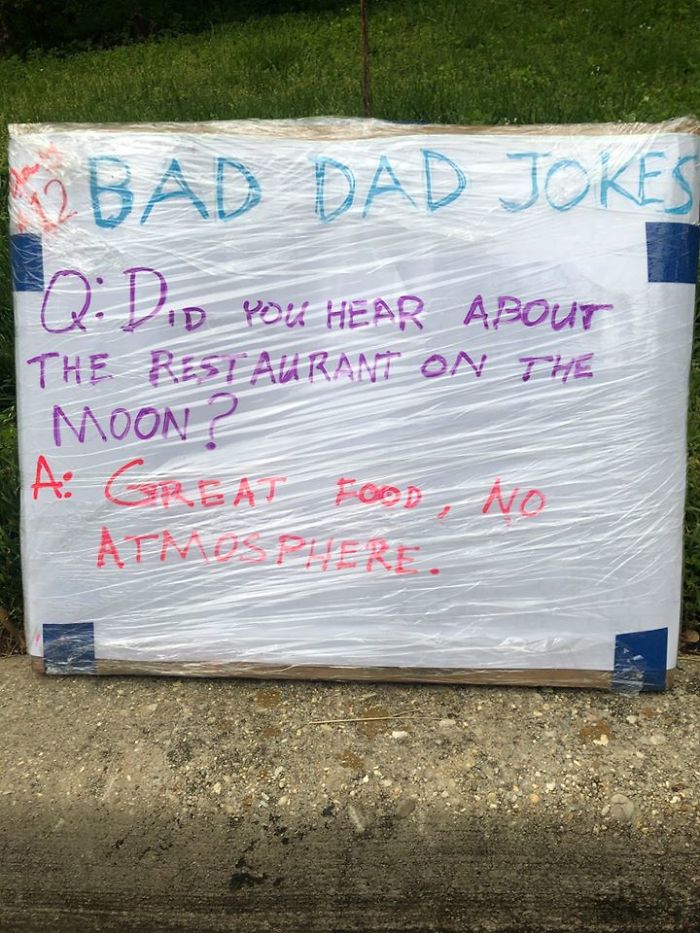 BAD DAD JOKES
Q: DID YOU HEAR ABOUT
THE RESTAURANT ON THE
MOON?
A: GREAT FOOD, NO
ATMOSPHERE.